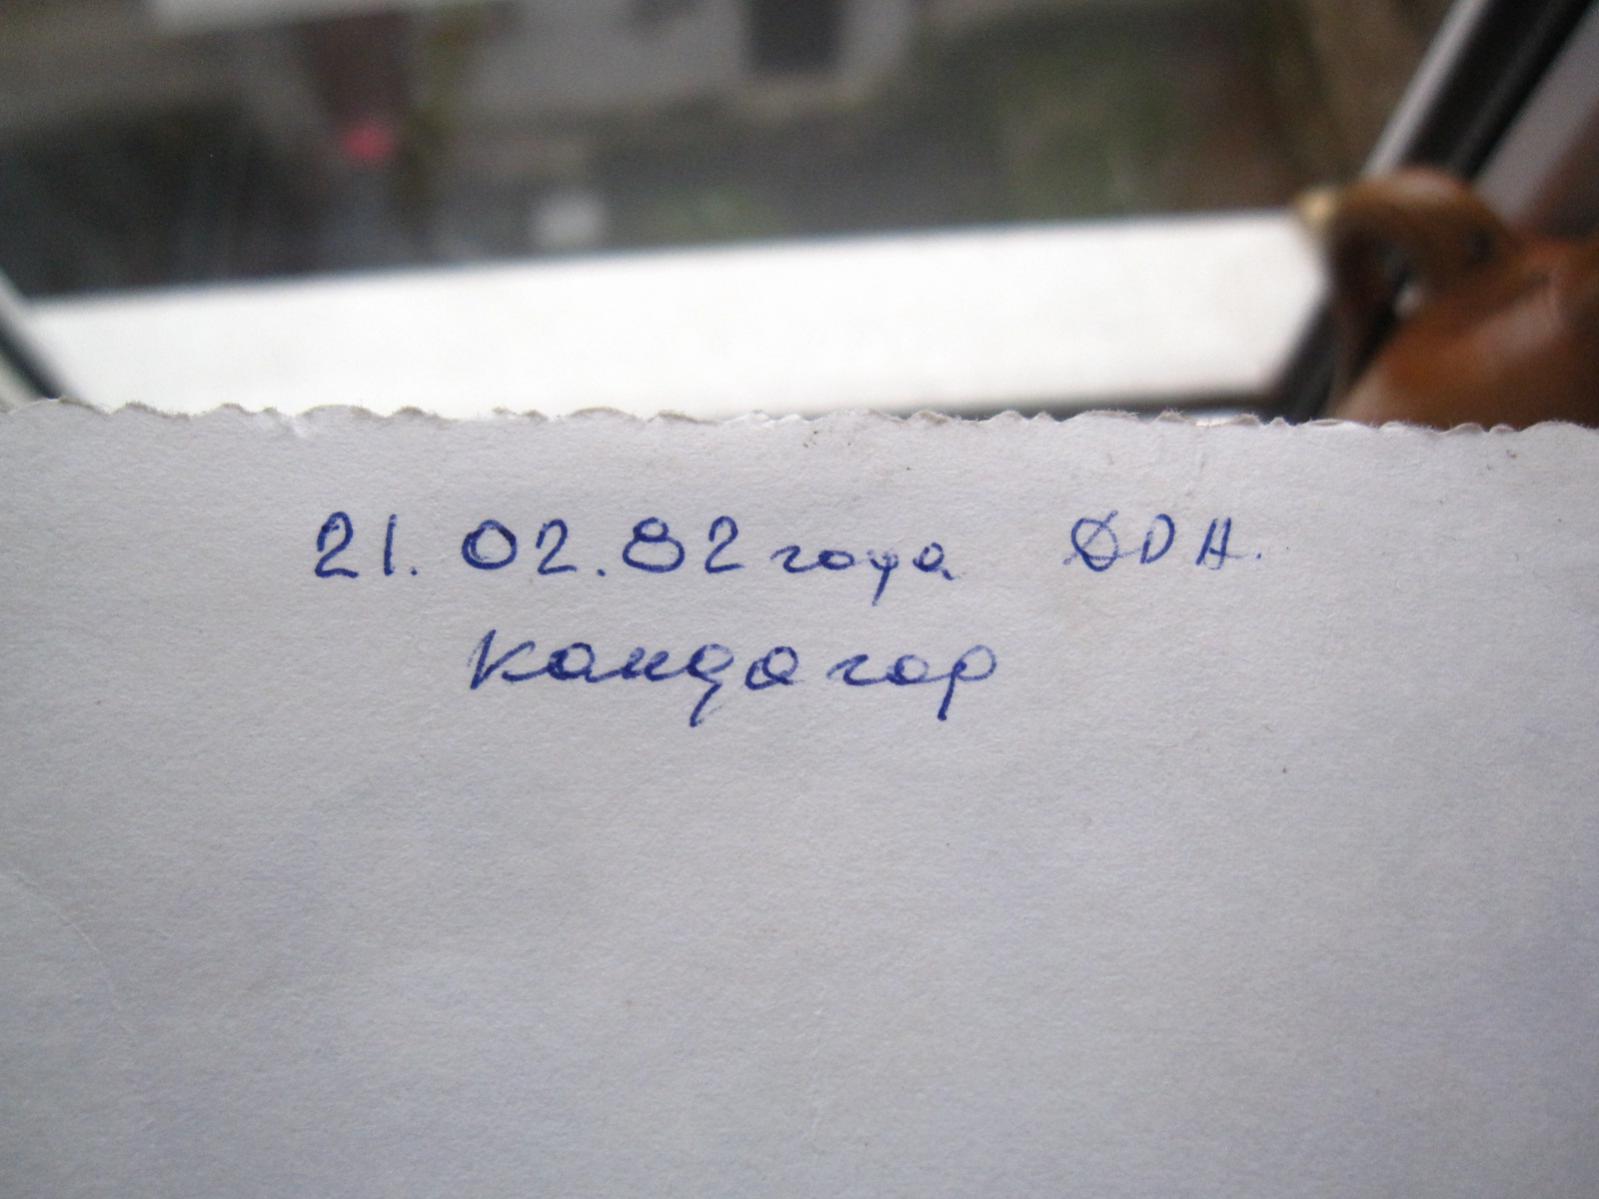 21. 02. 82 года ДРА.
Кандагар